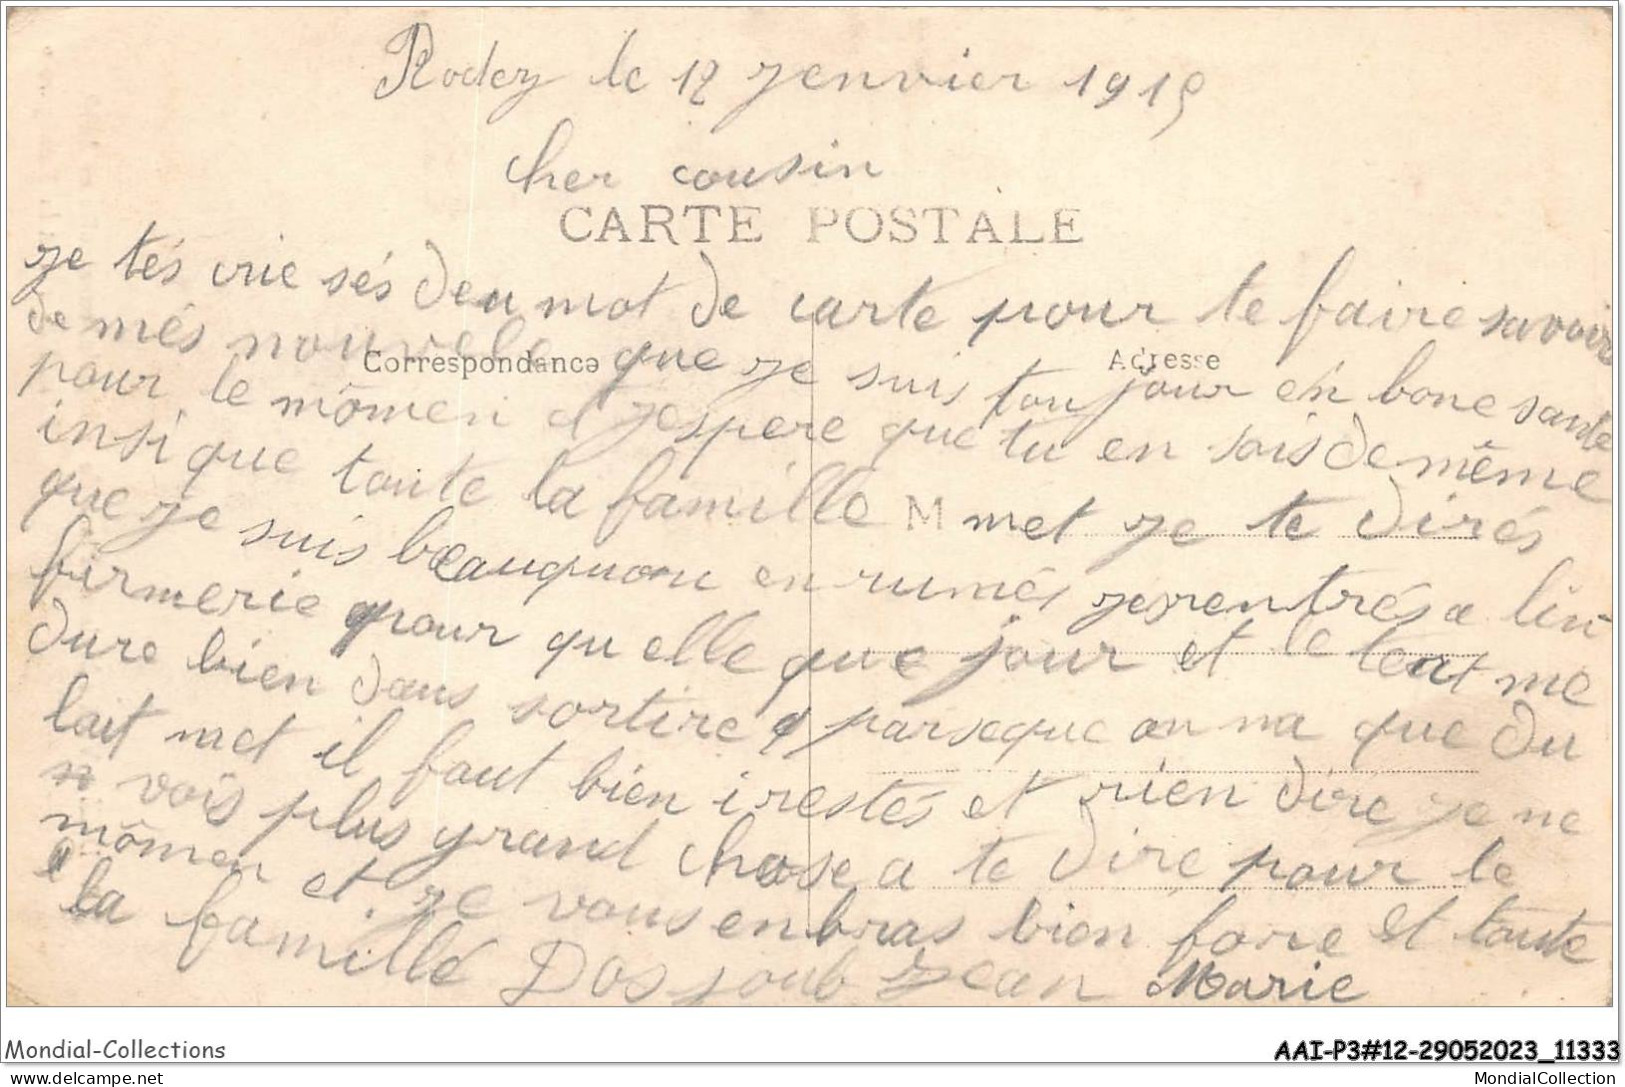 Rodez le 12 jenvier 1915
cher cousin
CARTE POSTALE
je tés crie sés deu mot de carte pour te faire savoir
de més nouvele que je suis toujour en bone sante
Correspondance
Adresse
pour le mômen et jespere que tu en sois de même
insi que toute la famille met je te dirés
M
que je suis beauquou en rumés je rentrés a lin
firmerie pour qu elle que jour et le tent me
dure bien dans sortire parseque on na que du
lait met il faut bien i restés et rien dire je ne
vois plus grand chose a te dire pour le
mômen et je vous enbras bien fore et toute
la famille Jean Marie
Mondial-Collections
AAI-P3#12-29052023_11333
www.delcampe.net
MondialCollection